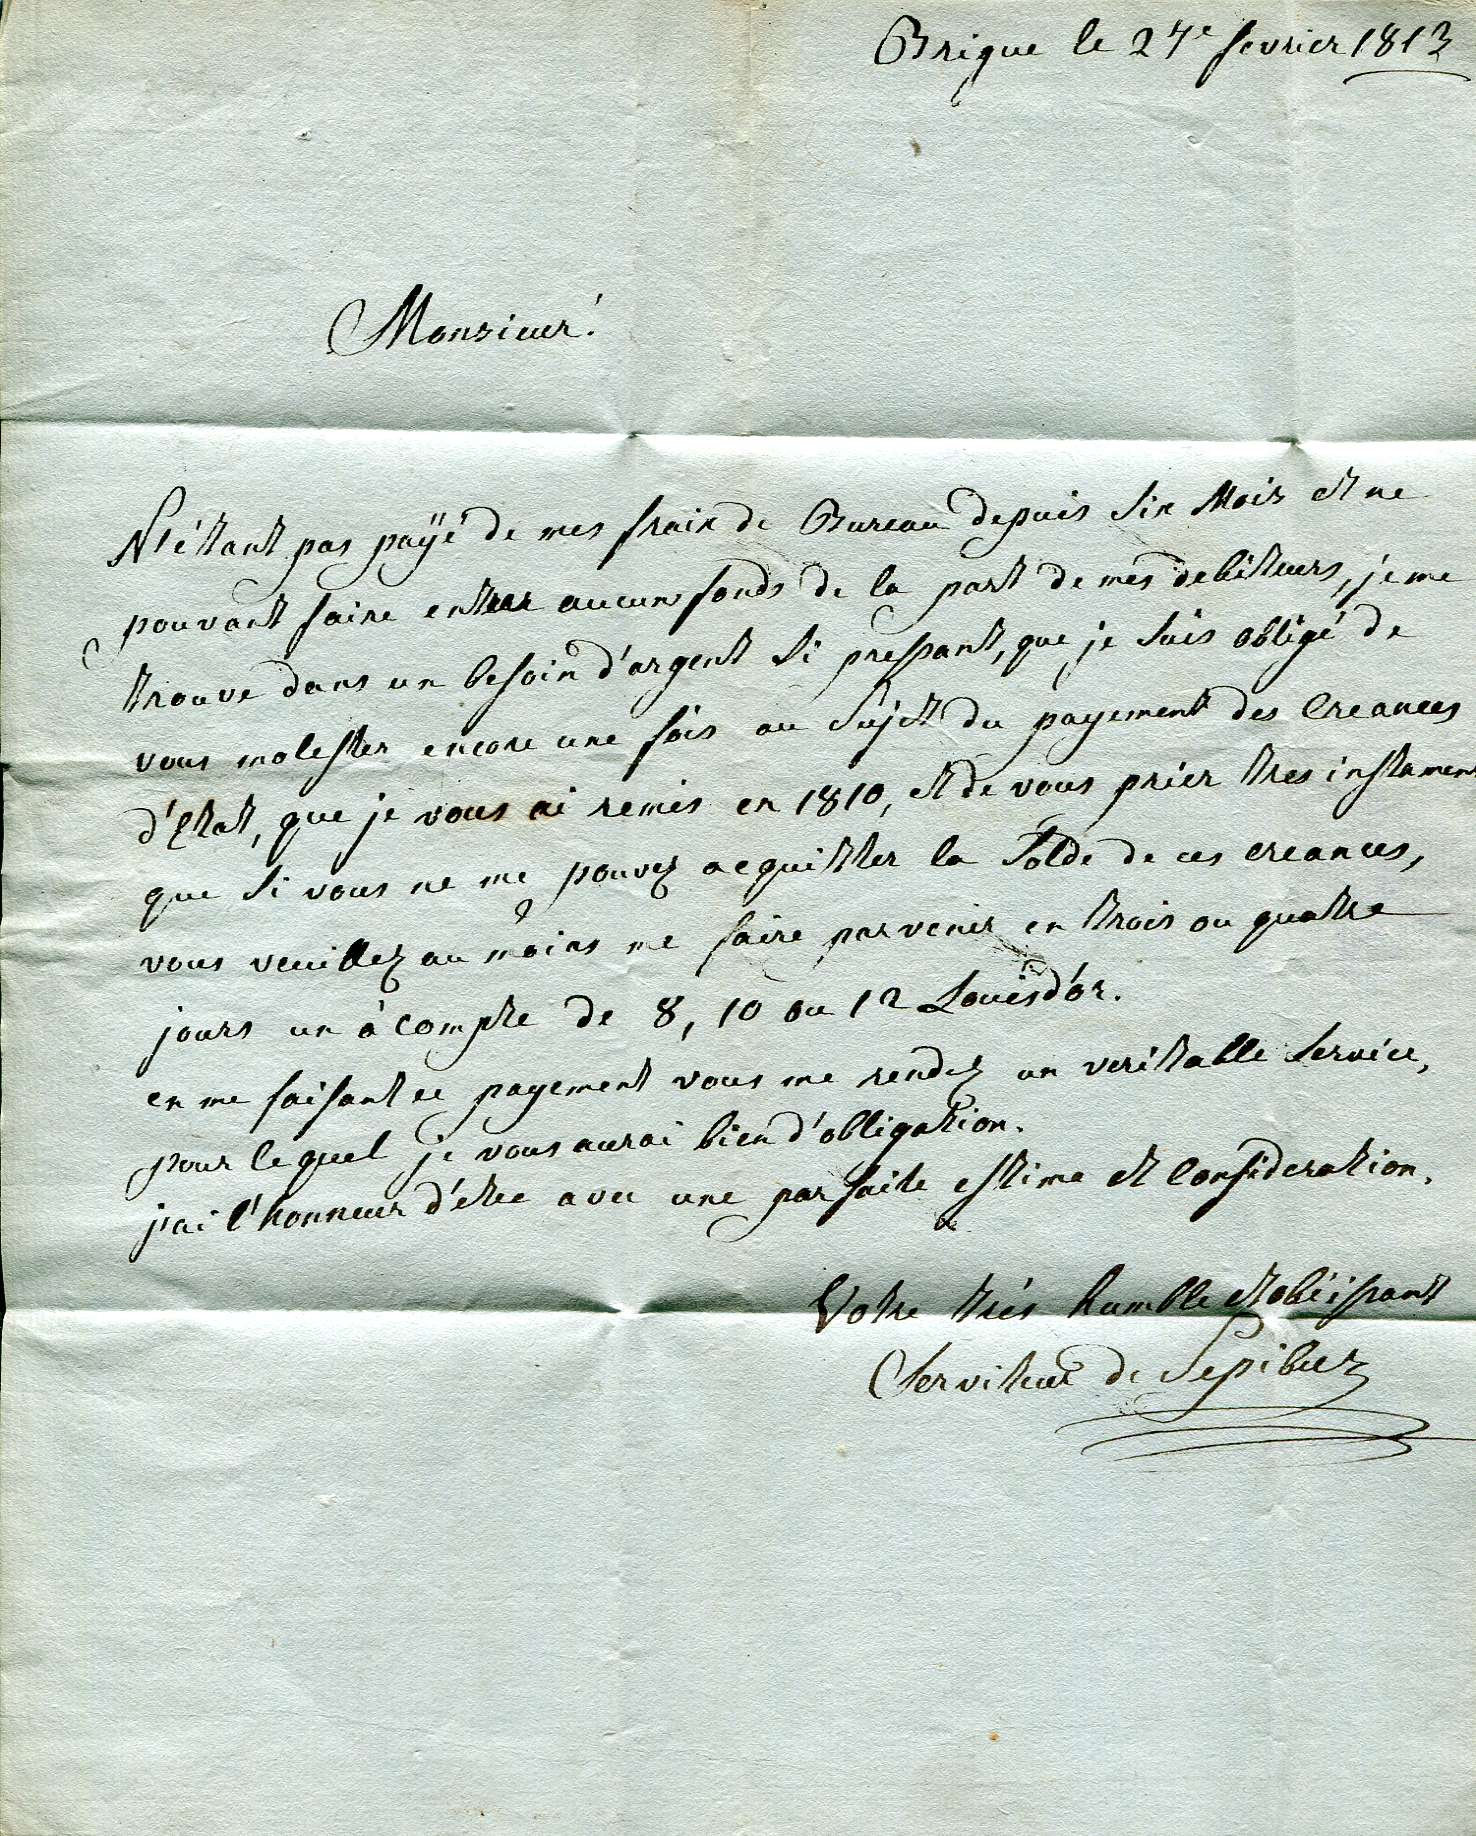 Brigue le 27e fevrier 1813
Monsieur!
N'étant pas payé de mes frais de Bureau depuis Six Mois et ne
pouvant faire entrer aucun fonds de la part de mes debiteurs, je me
trouve dans un besoin d'argent Si pressant, que je Suis obligé de
vous molester encore une fois au Sujet du payement des Creances
d'Etat, que je vous ai remis en 1810, et de vous prier tres instament
que Si vous ne me pouvez acquitter la Solde de ces creances,
vous veuillez au moins me faire parvenir en trois ou quatre
jours un à compte de 8, 10 ou 12 Louisd'or.
en me faisant ce payement vous me rendez un veritable Service,
pour lequel je vous aurai bien d'obligation.
j'ai l'honneur d'etre avec une parfaite estime et Consideration.
Votre très humble et obéissant
Serviteur de Sepibus